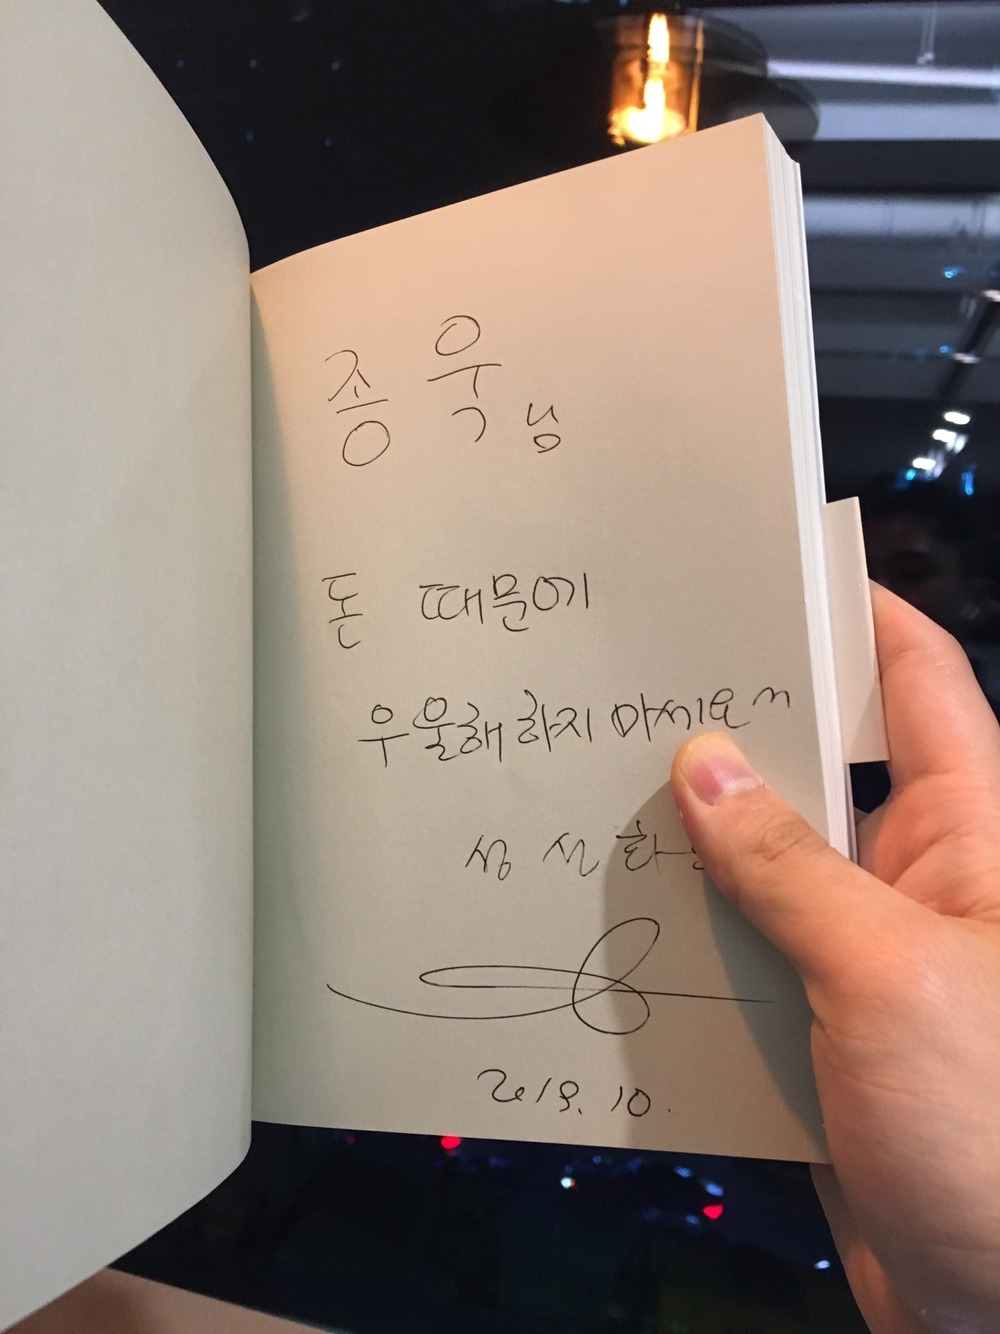 종욱님
돈 때문에
우울해 하지 마세요^^
성선화
2019. 10.